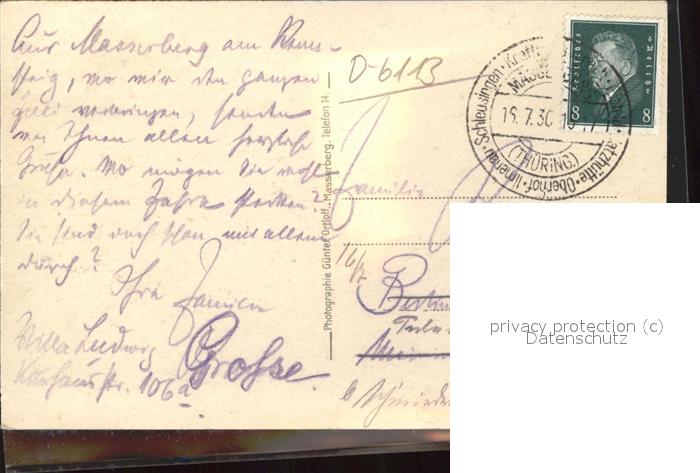 Aus Masserberg am Renn-
steig, wo wir den ganzen
Juli verbringen, senden
wir Ihnen allen herzliche
Grüße. Wo mögen Sie wohl
in diesem Jahre stecken?
Sie sind doch schon mit allem
durch?
Ihre Familie
Grosse.
Villa Ludwig
Kurhausstr. 106a
D-6113
Photographie Günter Ortloff, Masserberg. Telefon 14.
Familie
16/7
Berlin
Schmiede
Schleusingen · Ilmenau · Oberhof · Katzhütte
15.7.30
(THÜRING.)
Deutsches Reich
8 8
privacy protection (c)
Datenschutz